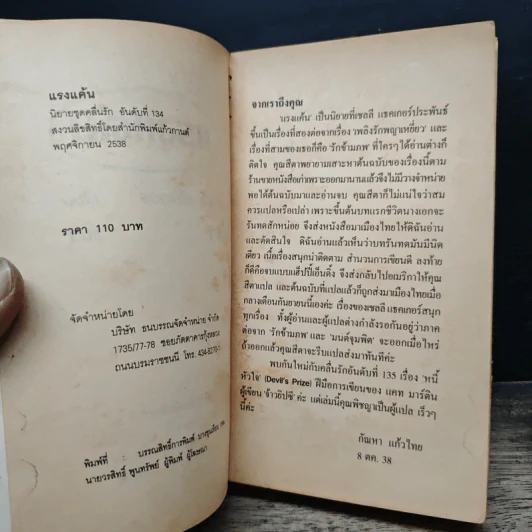 แรงแค้น
นิยายชุดคลื่นรัก อันดับที่ 134
สงวนลิขสิทธิ์โดยสำนักพิมพ์แก้วกานต์
พฤศจิกายน 2538
ราคา 110 บาท
จัดจำหน่ายโดย
บริษัท ธนบรรณจัดจำหน่าย จำกัด
1735/77-78 ซอยภัตตาคารกุ้งหลวง
ถนนบรมราชชนนี โทร.
พิมพ์ที่ : บรรณสิทธิ์การพิมพ์
นายวรสิทธิ์ พูนทรัพย์ ผู้พิมพ์ ผู้โฆษณา
จากเราถึงคุณ
'แรงแค้น' เป็นนิยายที่เชลลี แธคเกอร์ประพันธ์
ขึ้นเป็นเรื่องที่สองต่อจากเรื่อง 'เพลิงรักพญาเหยี่ยว' และ
เรื่องที่สามของเธอก็คือ 'รักข้ามภพ' ที่ใครๆได้อ่านต่างก็
ติดใจ คุณสีตาพยายามเสาะหาต้นฉบับของเรื่องนี้ตาม
ร้านขายหนังสือเก่าเพราะออกมานานแล้วจึงไม่มีวางจำหน่าย
พอได้ต้นฉบับมาและอ่านจบ คุณสีตาก็ไม่แน่ใจว่าสม
ควรแปลหรือเปล่า เพราะขึ้นต้นบทแรกชีวิตนางเอกจะ
รันทดสักหน่อย จึงส่งหนังสือมาเมืองไทยให้ดิฉันอ่าน
และตัดสินใจ ดิฉันอ่านแล้วเห็นว่าบทรันทดมันมีนิด
เดียว เนื้อเรื่องสนุกน่าติดตาม สำนวนการเขียนดี ลงท้าย
ก็ดีคือจบแบบแฮ็ปปี้เอ็นดิ้ง จึงส่งกลับไปอเมริกาให้คุณ
สีตาแปล และต้นฉบับที่แปลแล้วก็ถูกส่งมาเมืองไทยเมื่อ
กลางเดือนกันยายนนี้เองค่ะ เรื่องของเชลลี แธคเกอร์สนุก
ทุกเรื่อง ทั้งผู้อ่านและผู้แปลต่างกำลังรอกันอยู่ว่าภาค
ต่อจาก 'รักข้ามภพ' และ 'มนต์จุมพิต' จะออกเมื่อไหร่
ถ้าออกแล้วคุณสีตาจะรีบแปลส่งมาทันทีค่ะ
พบกันใหม่กับคลื่นรักอันดับที่ 135 เรื่อง 'หนี้
หัวใจ' (Devil's Prize) ฝีมือการเขียนของ แคท มาร์ติน
ผู้เขียน 'จ้าวยิปซี' ค่ะ แต่เล่มนี้คุณพิชญาเป็นผู้แปล เร็วๆ
นี้ค่ะ
กัณหา แก้วไทย
8 ตค. 38